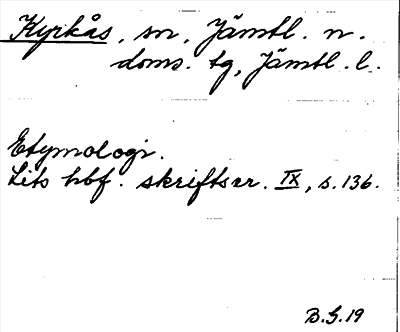 Kyrkås, sn, Jämtl. n.
doms. tg, Jämtl. l.
Etymologi.
Lits hbf. skriftser. IX, s. 136.
B.G.19